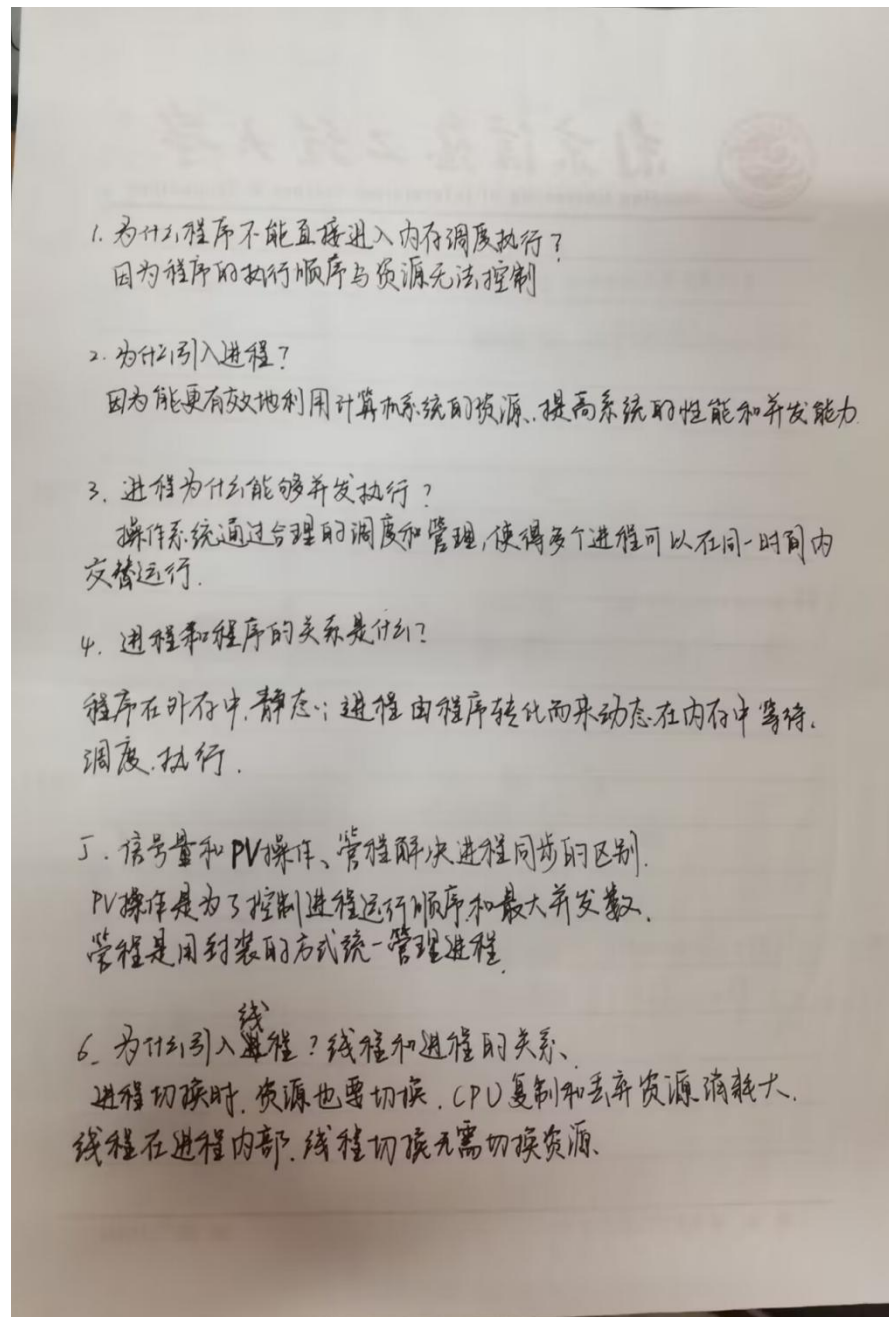 1. 为什么程序不能直接进入内存调度执行?
因为程序的执行顺序与资源无法控制
2. 为什么引入进程?
因为能更有效地利用计算机系统的资源、提高系统的性能和并发能力.
3. 进程为什么能够并发执行?
操作系统通过合理的调度和管理,使得多个进程可以在同一时间内
交替运行.
4. 进程和程序的关系是什么?
程序在外存中.静态;进程由程序转化而来动态在内存中等待、
调度.执行.
5. 信号量和PV操作、管程解决进程同步的区别.
PV操作是为了控制进程运行顺序和最大并发数.
管程是用封装的方式统一管理进程.
6. 为什么引入线程?线程和进程的关系、
进程切换时.资源也要切换.CPU复制和丢弃资源消耗大.
线程在进程内部.线程切换无需切换资源.